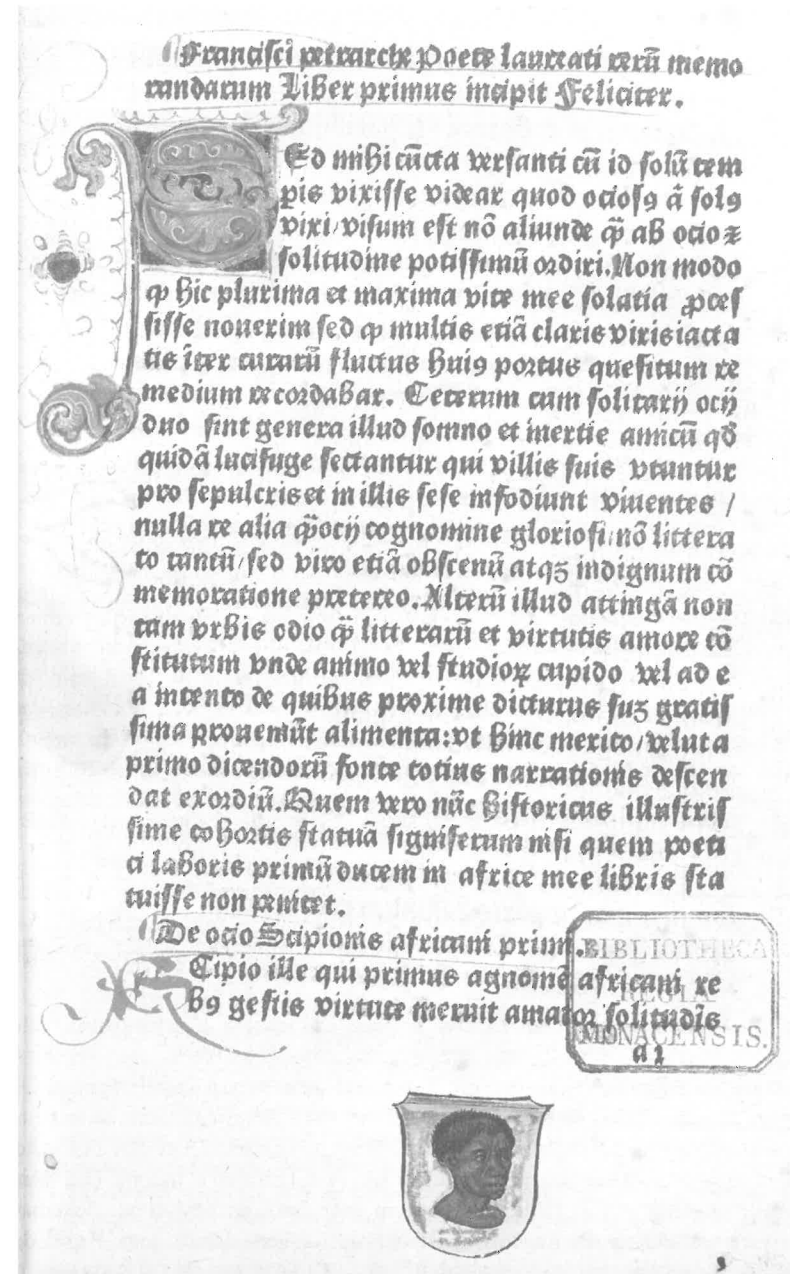 Francisci petrarche Poete laureati rerū memo
randarum Liber primus incipit Feliciter.
SEd mihi cūcta versanti cū id solū tem
pis vixisse videar quod ociosꝯ ā solꝯ
vixi/visum est nō aliunde ꝙ̄ ab ocio ⁊
solitudine potissimū ordiri. Non modo
ꝙ hic plurima et maxima vite mee solatia ꝓces
sisse nouerim sed ꝙ multis etiā claris viris iacta
tis īter curarū fluctus huiꝯ portus quesitum re
medium recordabar. Ceterum cum solitarij ocij
duo sint genera illud somno et inertie amicū qd̄
quidā lucifuge sectantur qui villis suis vtuntur
pro sepulcris et in illis sese infodiunt viuentes /
nulla re alia ꝙ̄ ocij cognomine gloriosi/nō littera
to tantū/sed viro etiā obscenū atqꝫ indignum cō
memoratione pretereo. Alterū illud attingā non
tam vrbis odio ꝙ̄ litterarū et virtutis amore cō
stitutum vnde animo vel studioꝝ cupido vel ad e
a intento de quibus proxime dicturus suꝫ gratis
sima proueniūt alimenta: vt hinc merito/velut a
primo dicendorū fonte totius narrationis descen
dat exordiū. Quem vero nūc historicus illustris
sime cohortis statuā signiferum nisi quem poeti
ci laboris primū ducem in africe mee libris sta
tuisse non penitet.
De ocio Scipionis africani primi.
SCipio ille qui primus agnomē africani re
bꝯ gestis virtute meruit amator solitudīs
a 1
BIBLIOTHECA
REGIA
MONACENSIS.